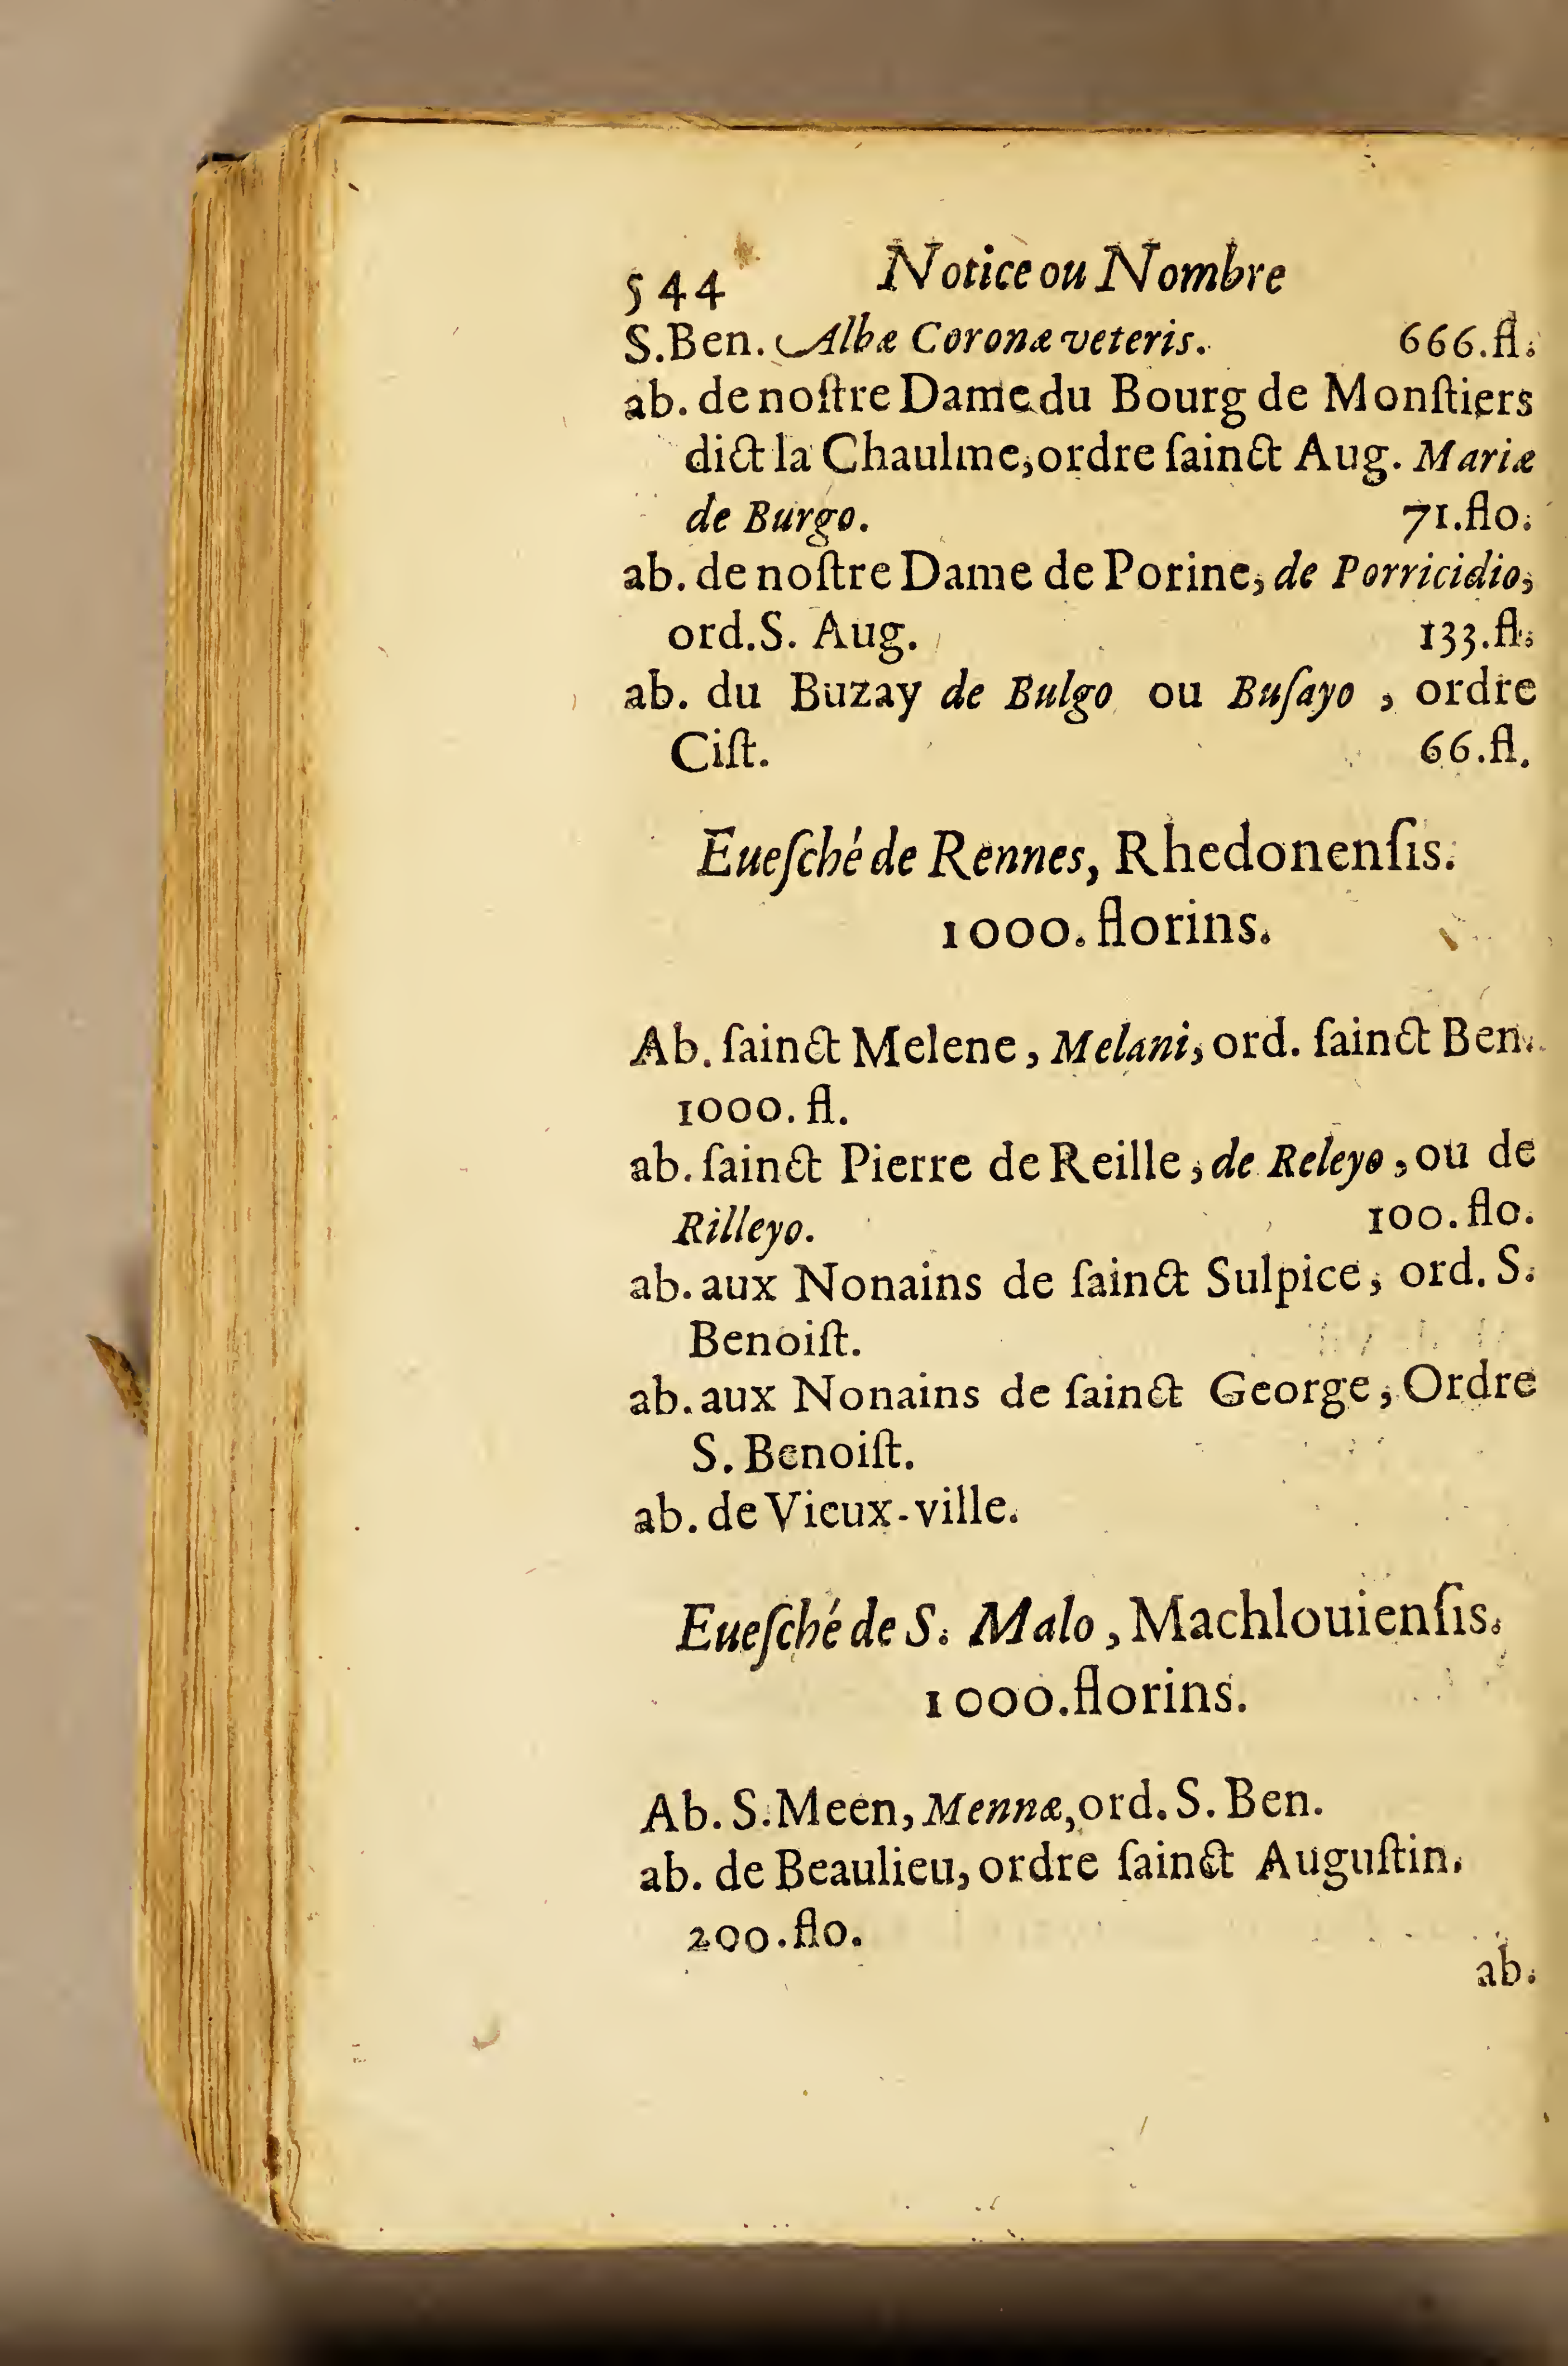 544 Notice ou Nombre
S.Ben. Albæ Coronæ veteris. 666.fl.
ab. de noſtre Dame du Bourg de Monſtiers
dict la Chaulme, ordre ſainct Aug. Mariæ
de Burgo. 71.flo.
ab. de noſtre Dame de Porine, de Porricidio,
ord.S. Aug. 133.fl.
ab. du Buzay de Bulgo ou Buſayo , ordre
Ciſt. 66.fl.
Eueſché de Rennes, Rhedonenſis.
1000. florins.
Ab. ſainct Melene, Melani, ord. ſainct Ben.
1000. fl.
ab. ſainct Pierre de Reille, de Releyo, ou de
Rilleyo. 100. flo.
ab. aux Nonains de ſainct Sulpice, ord. S.
Benoiſt.
ab. aux Nonains de ſainct George, Ordre
S. Benoiſt.
ab. de Vieux-ville.
Eueſché de S. Malo, Machlouienſis.
1000.florins.
Ab. S.Meen, Mennæ, ord. S. Ben.
ab. de Beaulieu, ordre ſainct Auguſtin.
200.flo.
ab.